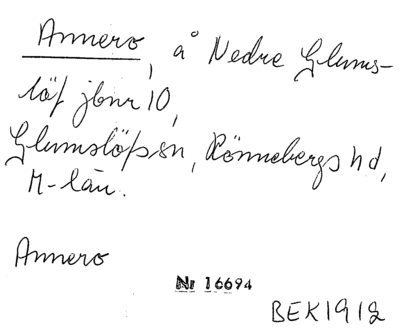 Annero, å Nedre Glums-
löf jbnr 10,
Glumslöfs sn, Rönnebergs hd,
M-län.
Annero
Nr 16694
BEK1912